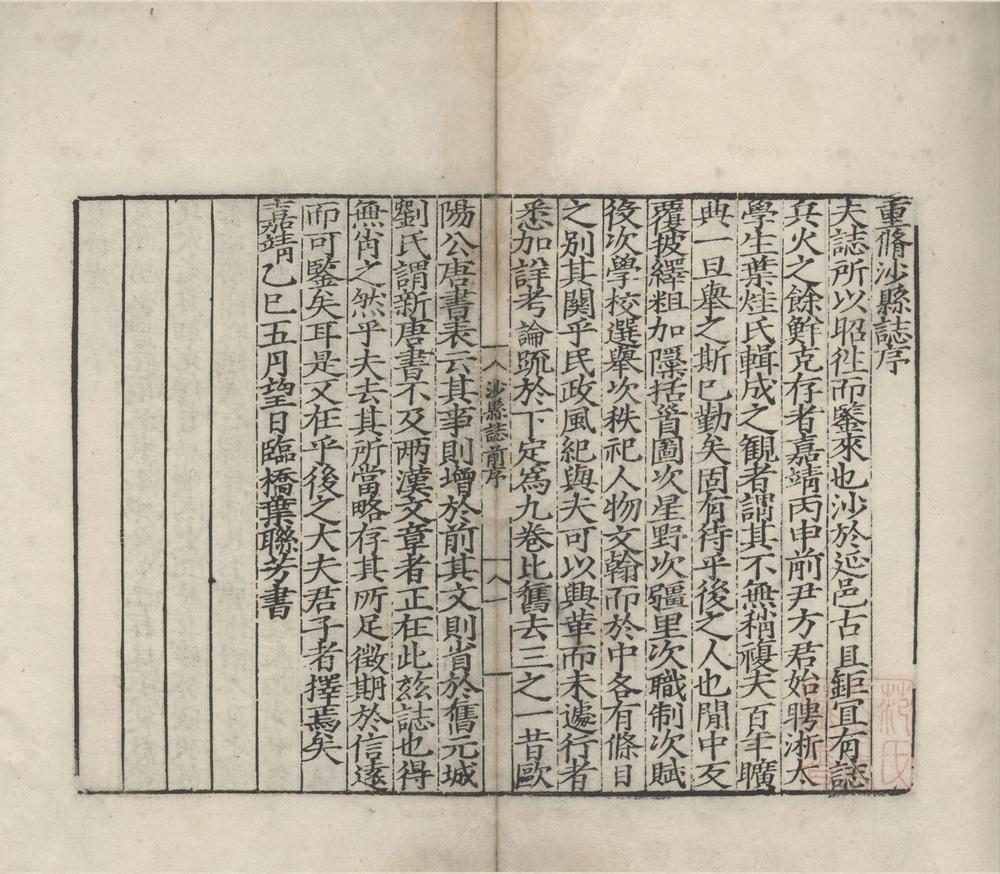 重脩沙縣誌序
夫誌所以昭徃而鑒來也沙於延邑古且鉅宜有誌
兵火之餘鮮克存者嘉靖丙申前尹方君始聘浙大
學生葉烓氏輯成之觀者謂其不無稍複夫百年曠
典一旦舉之斯已勤矣固有待乎後之人也閒中友
覆披繹粗加檃括晉圖次星野次疆里次職制次賦
後次學校選舉次秩祀人物文翰而於中各有條目
之別其關乎民政風紀與夫可以興革而未遽行者
悉加詳考論䟽於下定爲九卷比舊去三之一昔歐
沙縣誌前序
陽公唐書表云其事則增於前其文則省於舊元城
劉氏謂新唐書不及两漢文章者正在此玆誌也得
無肖之然乎夫去其所當略存其所足徵期於信逺
而可鑒矣耳是又在乎後之大夫君子者擇焉矣
嘉靖乙巳五月望日臨橋葉聯芳書